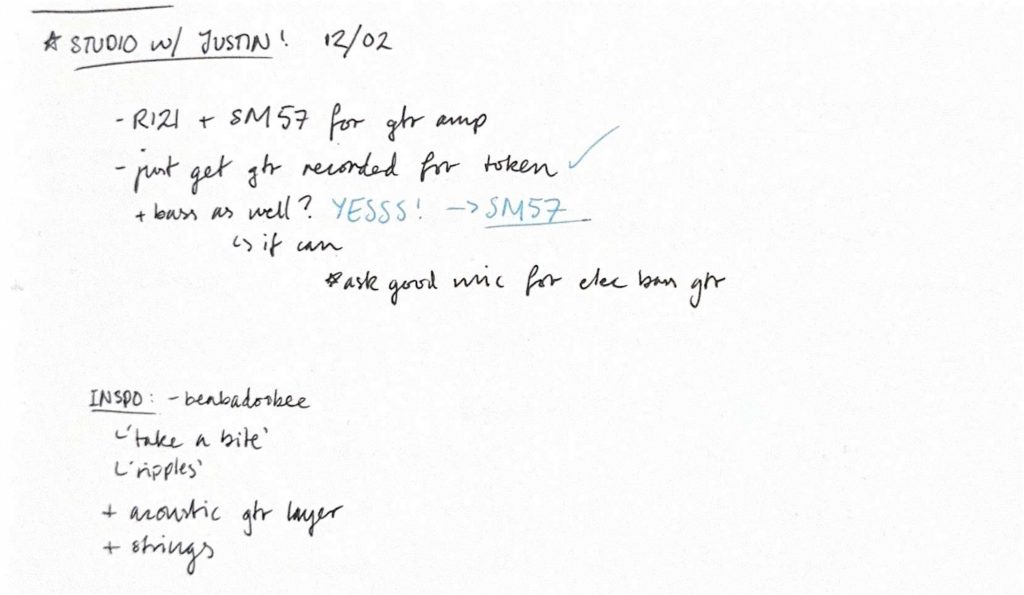 * STUDIO w/ JUSTIN! 12/02
- R121 + SM57 for gtr amp
- just get gtr recorded for token ✓
+ bass as well? YESSS! -> SM57
↳ if can
*ask good mic for elec bass gtr
INSPO: - beabadoobee
↳ 'take a bite'
↳ 'ripples'
+ acoustic gtr layer
+ strings